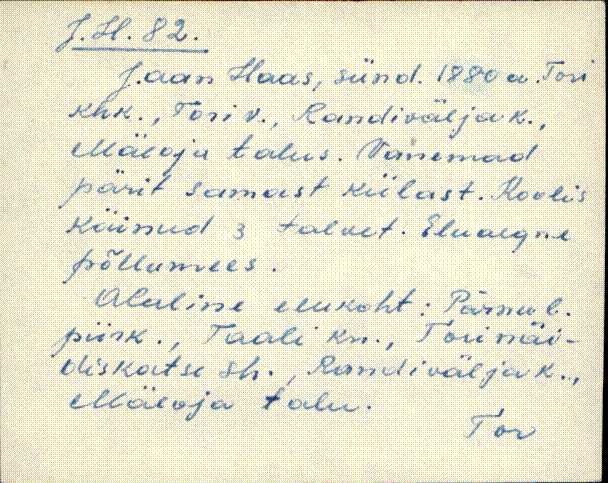 J.H. 82.
Jaan Haas, sünd. 1880 a. Tori
khk., Tori v., Randivälja k.,
Mäeoja talus. Vanemad
pärit samast külast. Koolis
käinud 3 talvet. Eluaegne
põllumees.
Alaline elukoht: Pärnu l.
piirk., Taali kn., Tori näi-
diskatse sh., Randivälja k.,
Mäeoja talu.
Tor